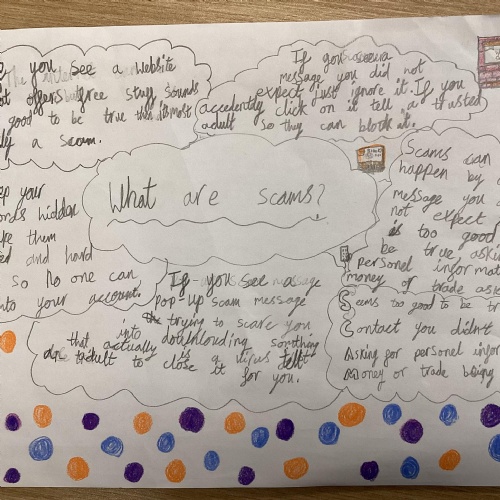 you see a website
offers free stuff sounds
good to be true this is most
a scam.
If you
message you did not
expect just ignore it. If you
accedently click on it tell a trusted
adult so they can block it.
What are scams?
Scams can
happen by a
message you d
not expect
is too good
be true aski
personel informat
money or trade ask
your
hidden
them
and hard
so no one can
into your account.
If you see
pop-up scam message
trying to scare you
into downloading somthing
that actually is a virus tell
adult to close it
for you.
Seems too good to be tr
Contact you didn't
Asking for personel infor
Money or trade being